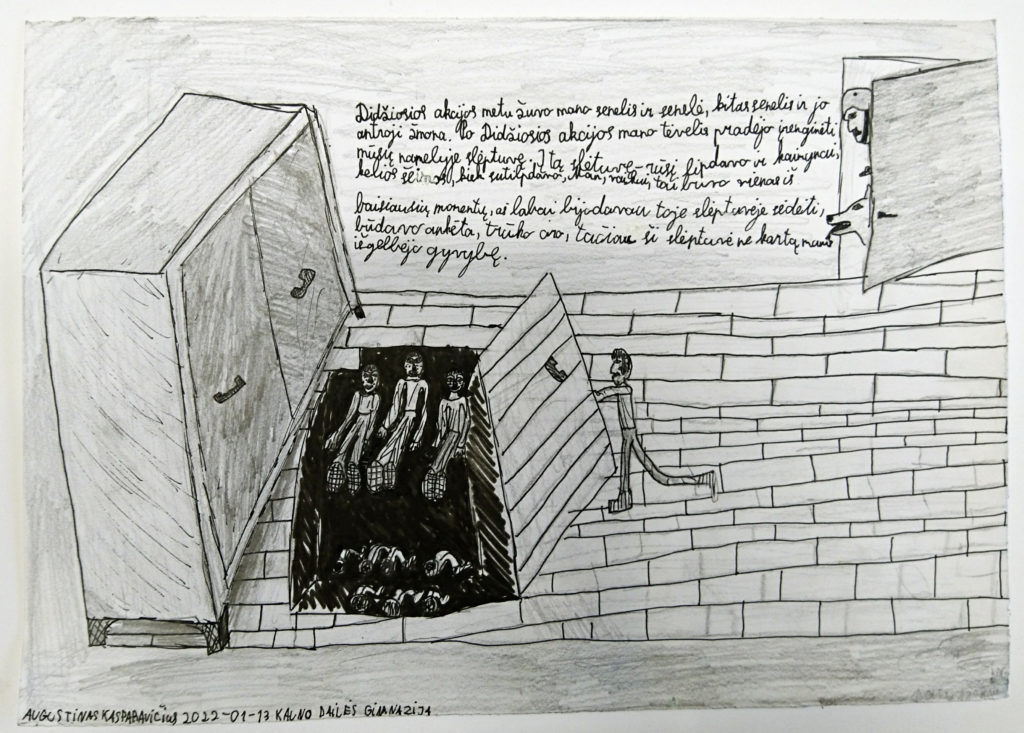 Didžiosios akcijos metu žuvo mano senelis ir senelė, kitas senelis ir jo
antroji žmona. Po Didžiosios akcijos mano tėvelis pradėjo įrenginėti
mūsų namelyje slėptuvę. Į tą slėtuvę-rūsį lipdavo ir kaimynai,
kelios šeimos, kiek sutilpdavo, man, vaikui, tai buvo vienas iš
baisiausių momentų, aš labai bijodavau toje slėptuvėje sėdėti,
būdavo ankšta, trūko oro, tačiau ši slėptuvė ne kartą mano
išgelbėjo gyvybę.
AUGUSTINAS KASPARAVIČIUS 2022-01-13 KAUNO DAILĖS GIMNAZIJA